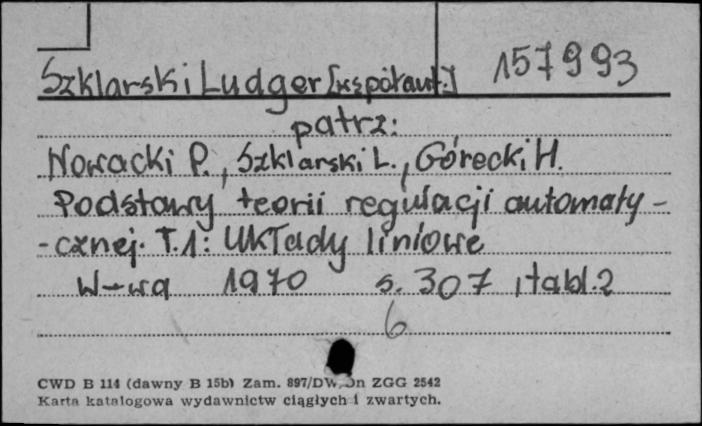 Szklarski Ludger [współaut.] 157993
patrz:
Nowacki P., Szklarski L., Górecki H.
Podstawy teorii regulacji automaty-
-cznej. T.1: Układy liniowe
W-wa 1970 s. 307, tabl. 2
6
CWD B 114 (dawny B 15b) Zam. 897/DW ZGG 2542
Karta katalogowa wydawnictw ciągłych i zwartych.